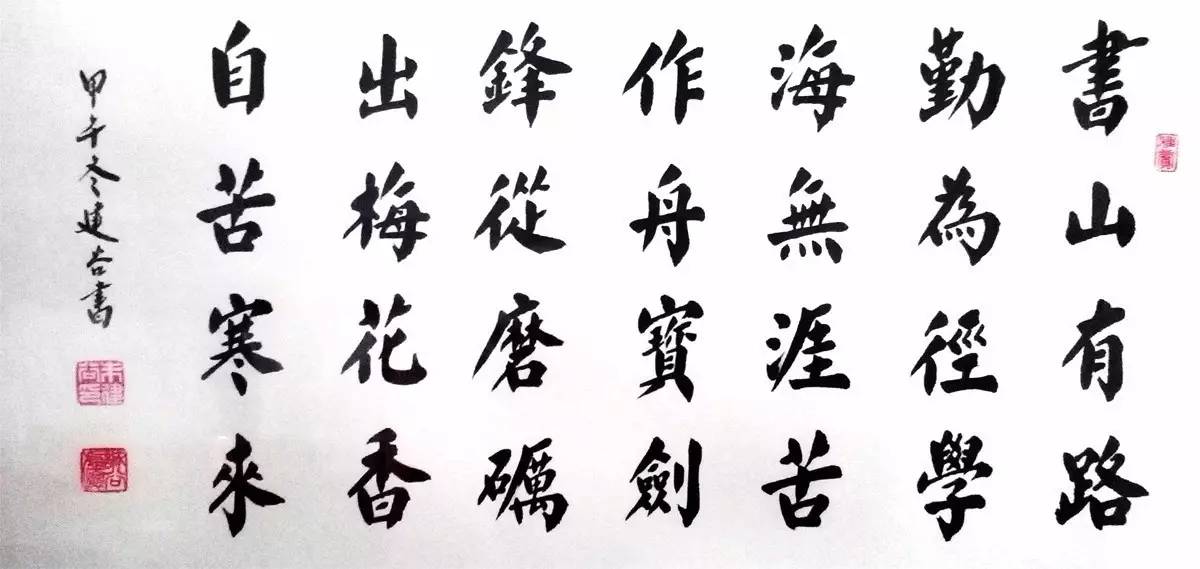 書山有路
勤為徑學
海無涯苦
作舟寶劍
鋒從磨礪
出梅花香
自苦寒來
甲午冬建谷書